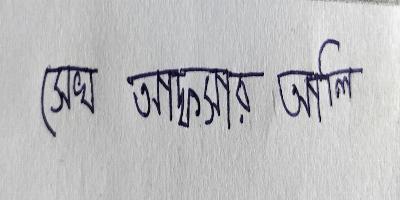 সেখ আফসার আলি